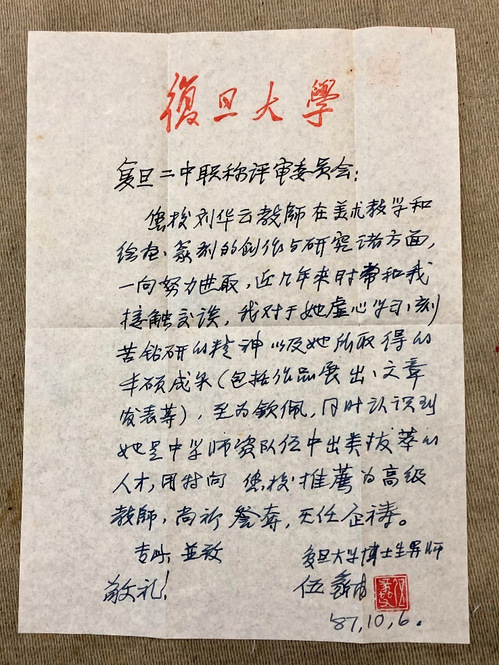 復旦大學
复旦二中职称评审委员会：
您校刘华云教師在美术教学和
绘画、篆刻的创作与研究诸方面，
一向努力进取，近几年来时常和我
接触交谈，我对于她虚心学习、刻
苦钻研的精神以及她所取得的
丰硕成果（包括作品展出、文章
发表等），至为钦佩，同时认识到
她是中学师资队伍中出类拔萃的
人才，用特向 您校推薦为高级
教師，尚祈 詧奪，无任企祷。
专此 並致
敬礼！
复旦大学博士生导师
伍蠡甫
87,10,6.